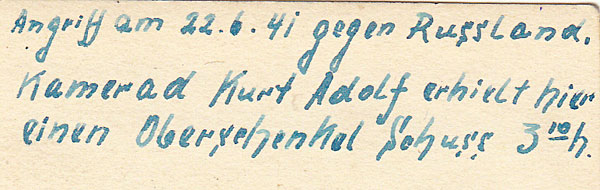 Angriff am 22.6.41 gegen Russland.
Kamerad Kurt Adolf erhielt hier
einen Oberschenkel Schuss 3¹⁰h.